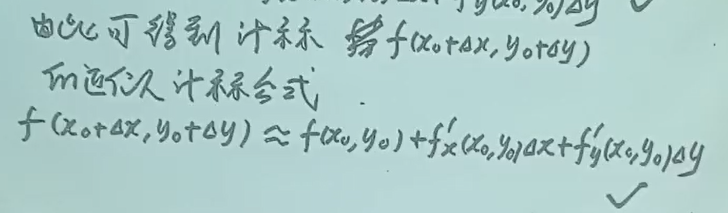 y(x₀,y₀)Δy ✓
由此可得到计算 f(x₀+Δx, y₀+Δy)
的近似计算公式.
f(x₀+Δx, y₀+Δy) ≈ f(x₀, y₀) + f'x(x₀, y₀)Δx + f'y(x₀, y₀)Δy
✓